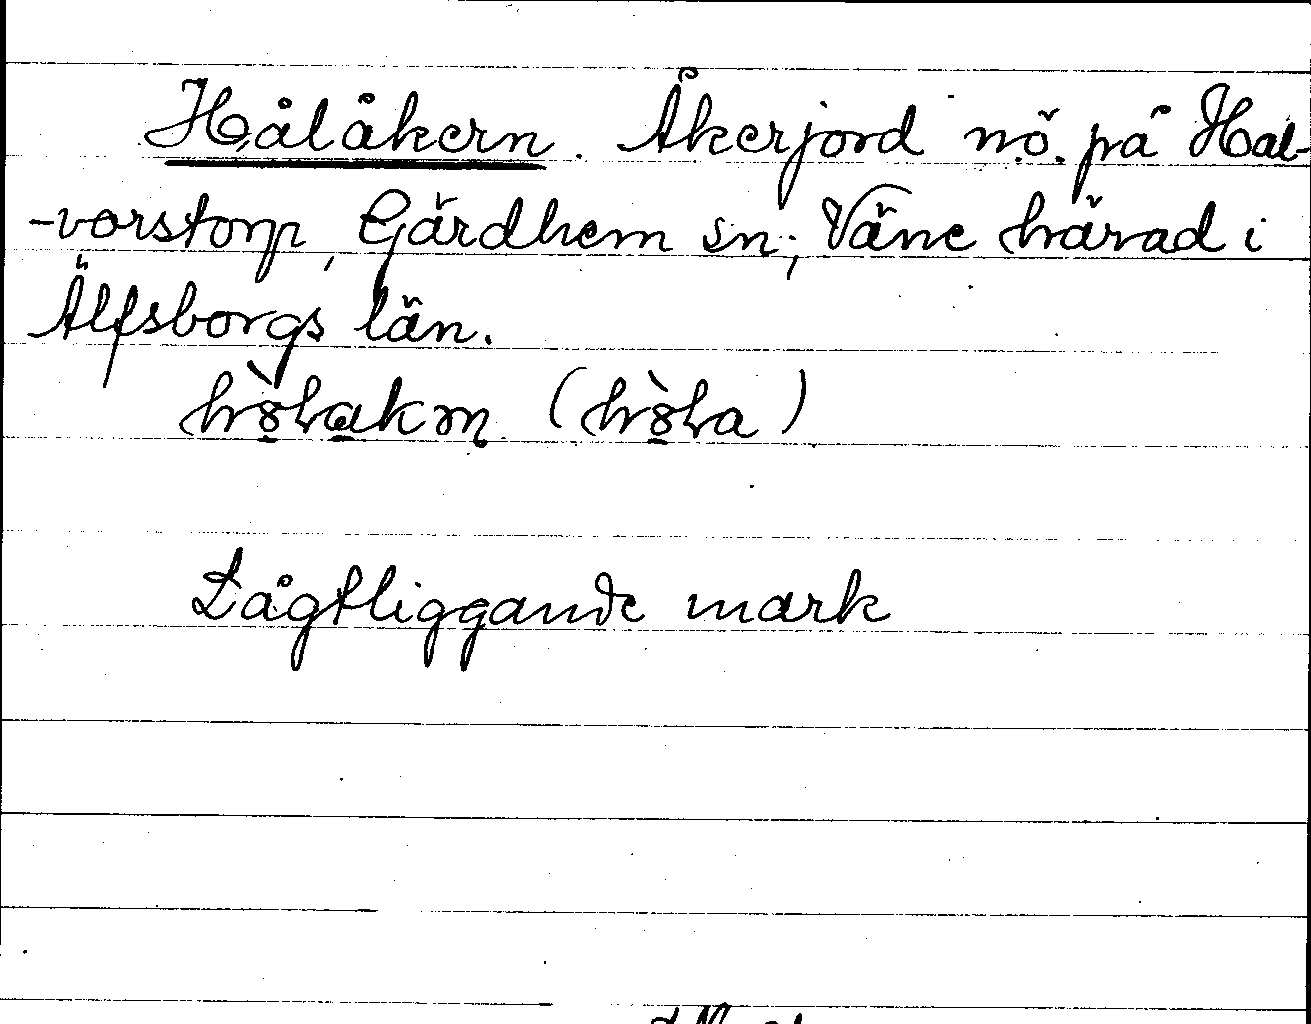 Hålåkern. Åkerjord nö. på Hal-
-vorstorp, Gärdhem sn; Väne härad i
Älfsborgs län.
Lågtliggande mark